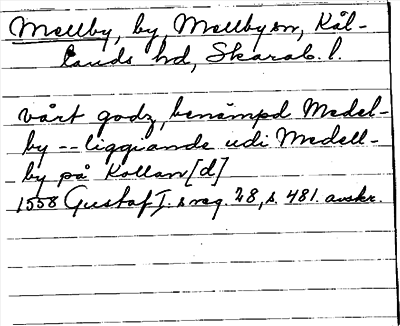 Mellby, by, Mellby sn, Kål-
lands hd, Skarab. l.
vårt godz, benämpd Medel-
by -- liggiande udi Medell-
by på Kollan[d]
1558 Gustaf I:s reg. 28, s. 481. avskr.